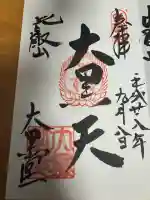 奉拝
平成廿八年
九月八日
大黒天
比叡山
大黒堂